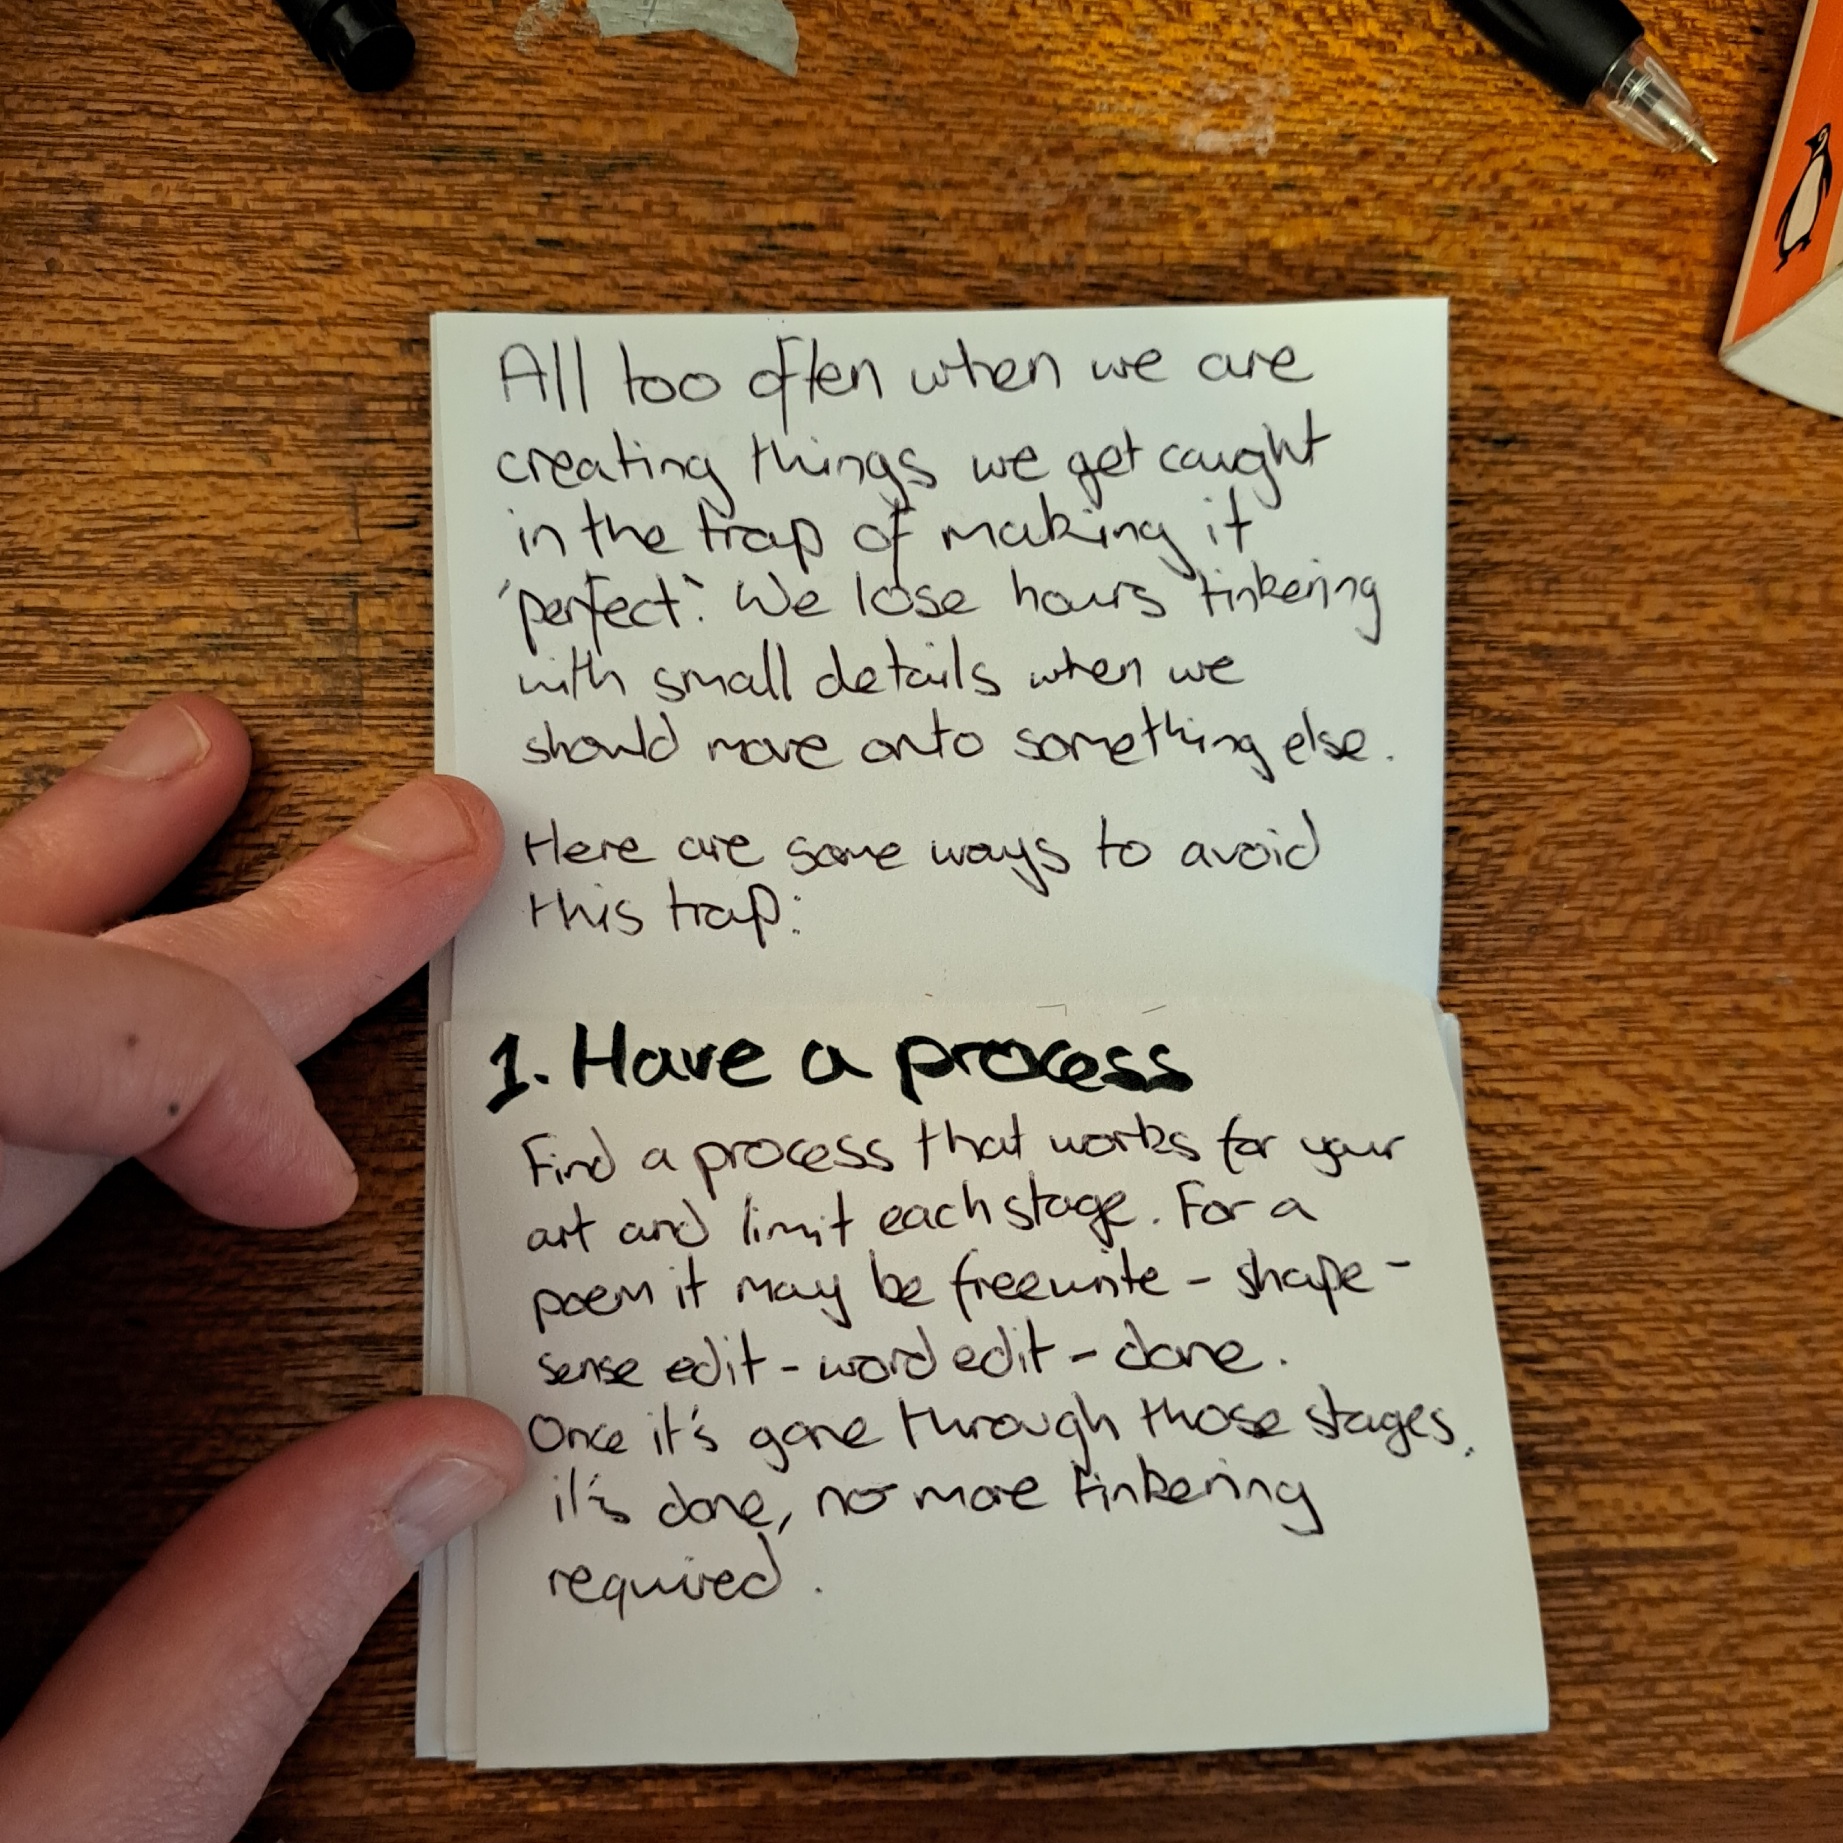 All too often when we are
creating things we get caught
in the trap of making it
'perfect'. We lose hours tinkering
with small details when we
should move onto something else.
Here are some ways to avoid
this trap:
1. Have a process
Find a process that works for your
art and limit each stage. For a
poem it may be freewrite - shape -
sense edit - word edit - done.
Once it's gone through those stages,
it's done, no more tinkering
required.